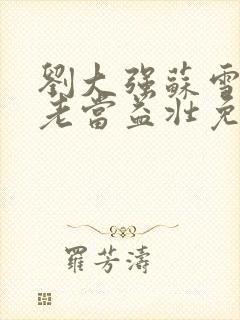 劉大强蘇雪
老當益壯免
羅芳濤